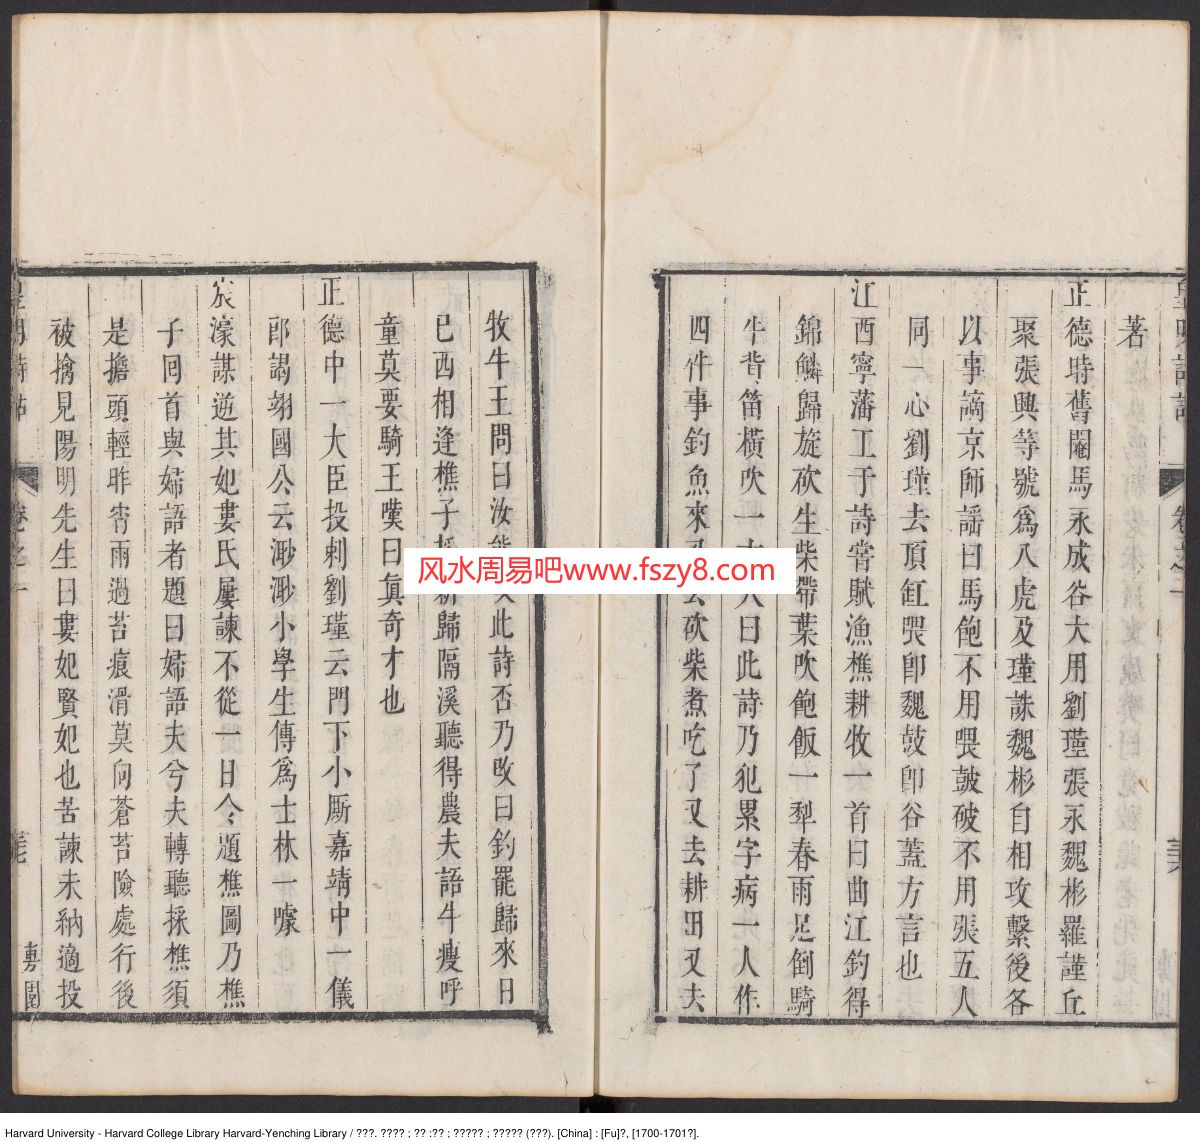 著
正德時舊閹馬永成谷大用劉瑾張永魏彬羅謹丘
聚張興等號爲八虎及瑾誅魏彬自相攻繫後各
以事謫京師謡曰馬飽不用喂皷破不用張五人
同一心劉瑾去頂缸喂卽魏鼓卽谷蓋方言也
江西寧藩工于詩嘗賦漁樵耕牧一首曰曲江釣得
錦鱗歸旋砍生柴帶葉吹飽飯一犁春雨足倒騎
牛背笛橫吹一 曰此詩乃犯累字病一人作
四件事釣魚來 砍柴煮吃了又去耕田又去
牧牛王問曰汝 此詩否乃改曰釣罷歸來日
已西相逢樵子 歸隔溪聽得農夫語牛瘦呼
童莫要騎王嘆曰眞奇才也
正德中一大臣投刺劉瑾云門下小厮嘉靖中一儀
郎謁翊國公云渺渺小學生傳爲士林一噱
宸濠謀逆其妃婁氏屢諫不從一日令題樵圖乃樵
子回首與婦語者題曰婦語夫兮夫轉聽採樵須
是擔頭輕昨宵雨過苔痕滑莫向蒼苔險處行後
被擒見陽明先生曰婁妃賢妃也苦諫未納適投
風水周易吧www.fszy8.com
Harvard University - Harvard College Library Harvard-Yenching Library / ???. ???? ; ?? :?? ; ????? ; ????? (???). [China] : [Fu]?, [1700-1701?].